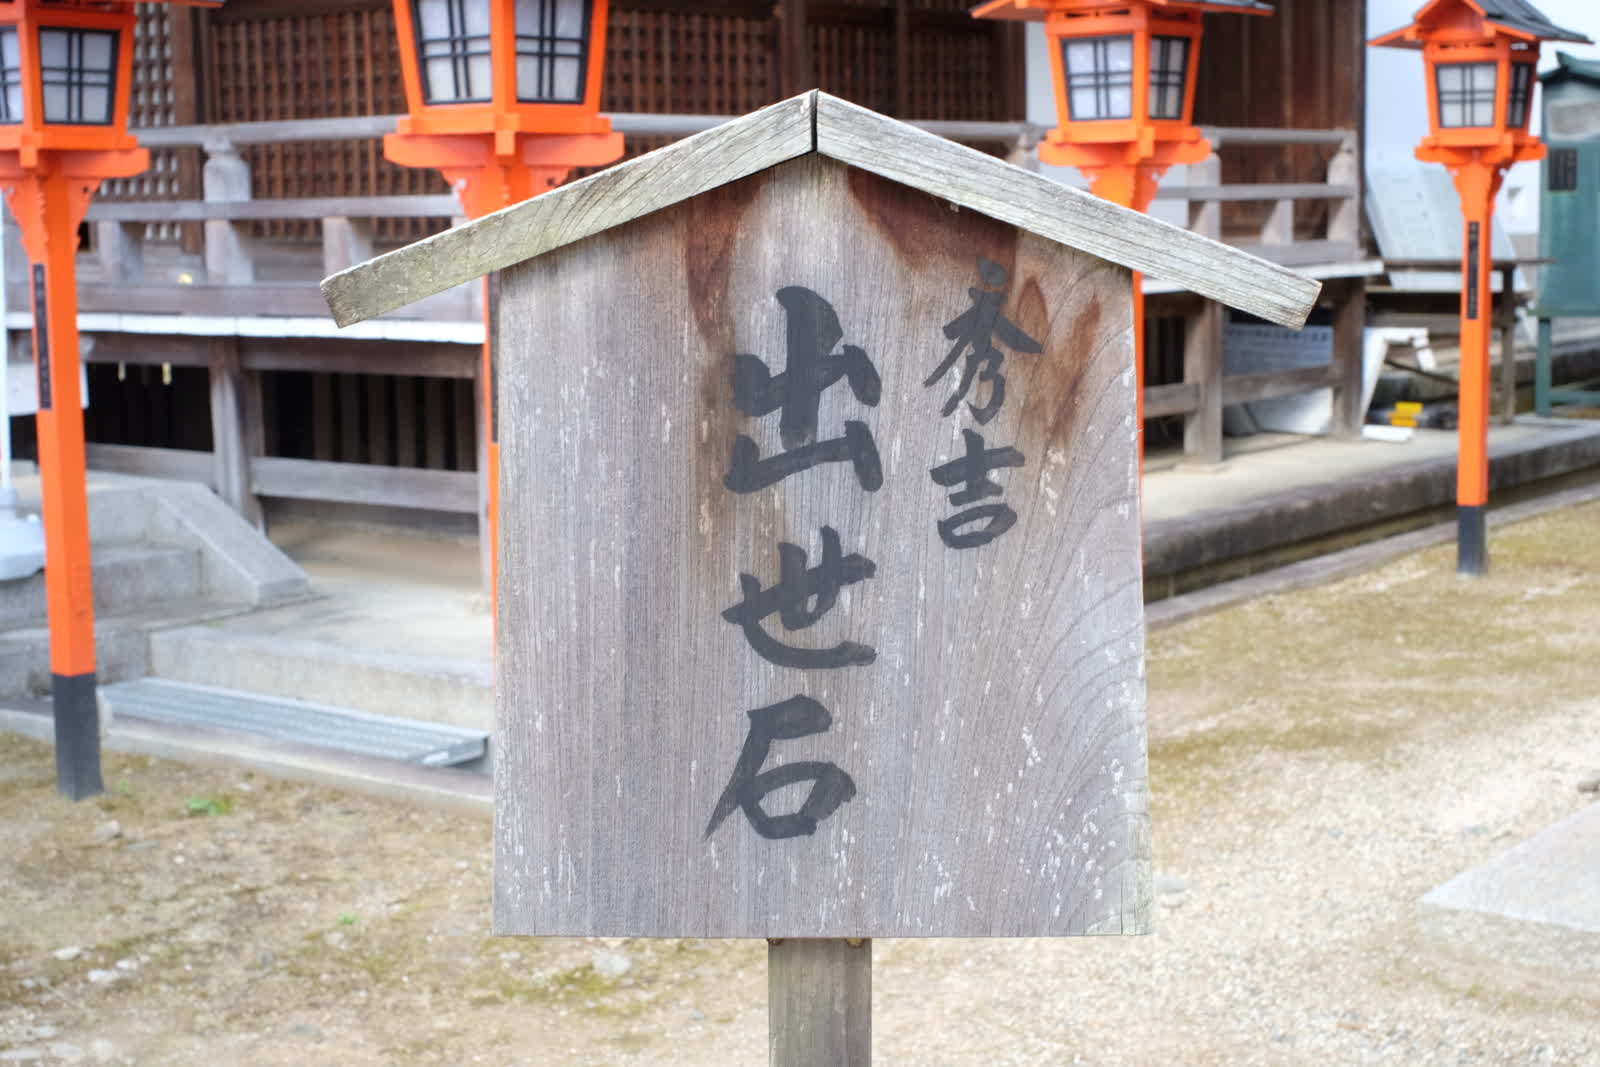 秀吉
出世石